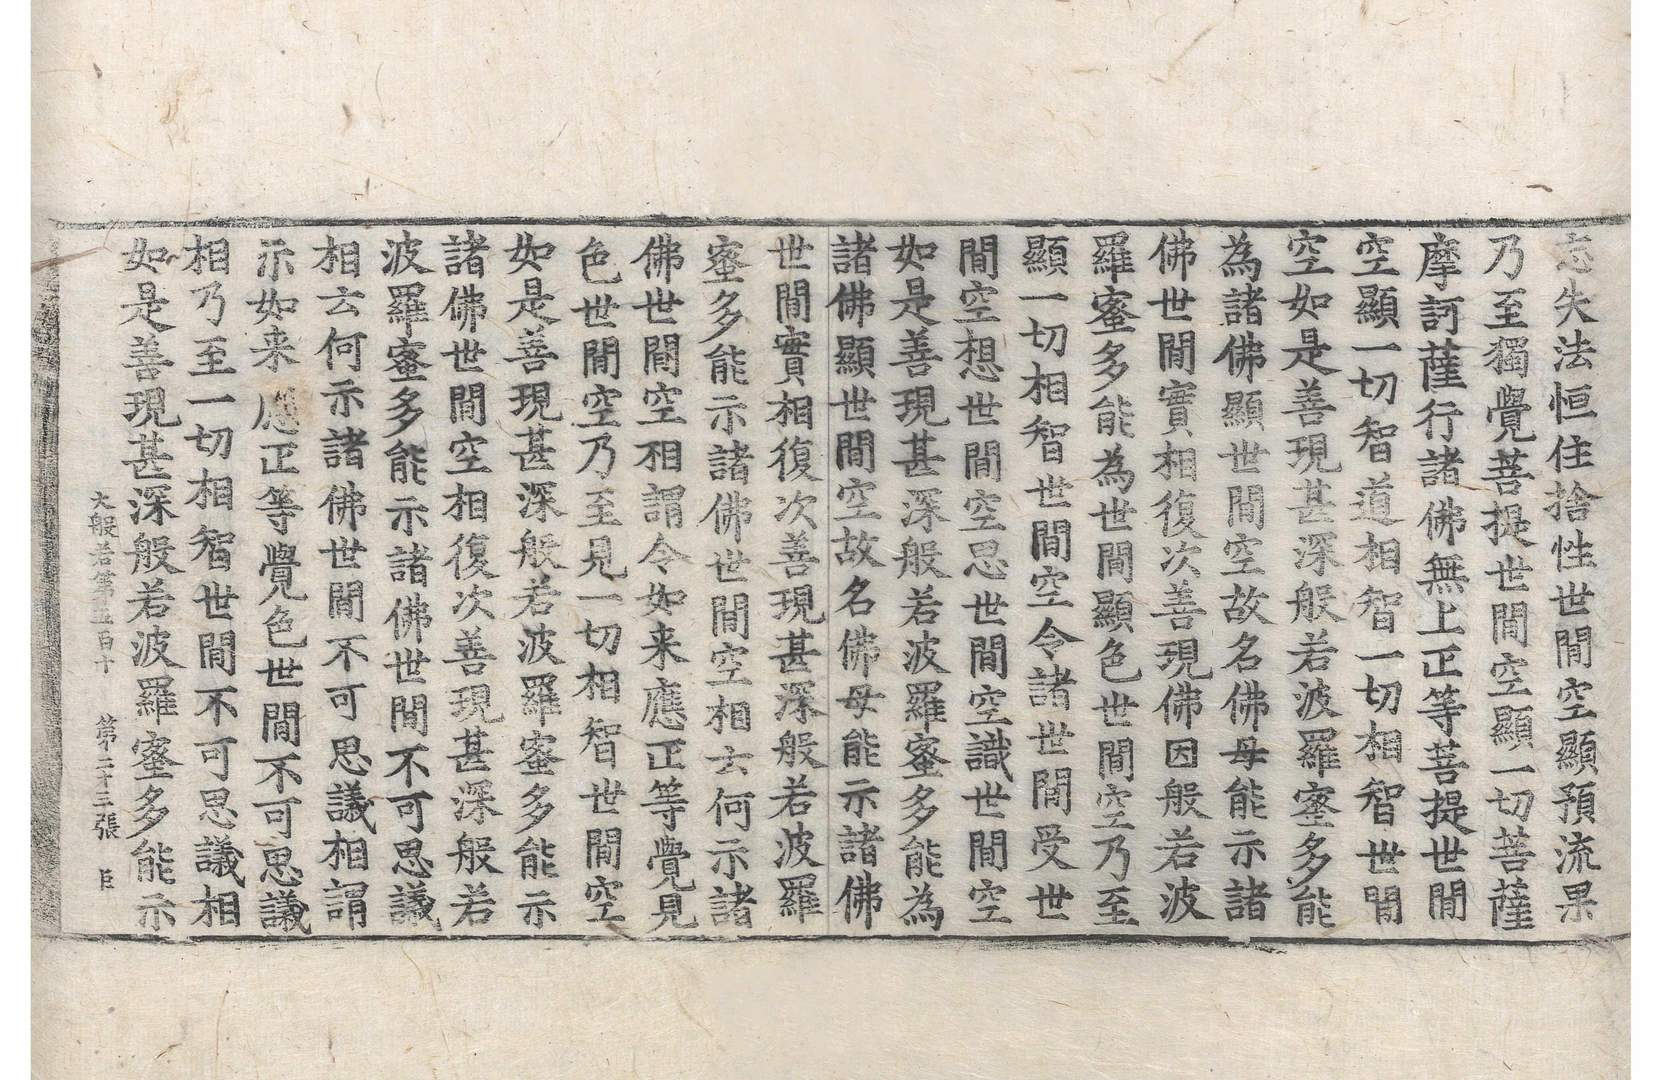 忘失法恒住捨性世間空顯預流果
乃至獨覺菩提世間空顯一切菩薩
摩訶薩行諸佛無上正等菩提世間
空顯一切智道相智一切相智世間
空如是善現甚深般若波羅蜜多能
為諸佛顯世間空故名佛母能示諸
佛世間實相復次善現佛因般若波
羅蜜多能為世間顯色世間空乃至
顯一切相智世間空令諸世間受世
間空想世間空思世間空識世間空
如是善現甚深般若波羅蜜多能為
諸佛顯世間空故名佛母能示諸佛
世間實相復次善現甚深般若波羅
蜜多能示諸佛世間空相云何示諸
佛世間空相謂令如来應正等覺見
色世間空乃至見一切相智世間空
如是善現甚深般若波羅蜜多能示
諸佛世間空相復次善現甚深般若
波羅蜜多能示諸佛世間不可思議
相云何示諸佛世間不可思議相謂
示如来應正等覺色世間不可思議
相乃至一切相智世間不可思議相
如是善現甚深般若波羅蜜多能示
大般若第五百十 第二十三張 臣